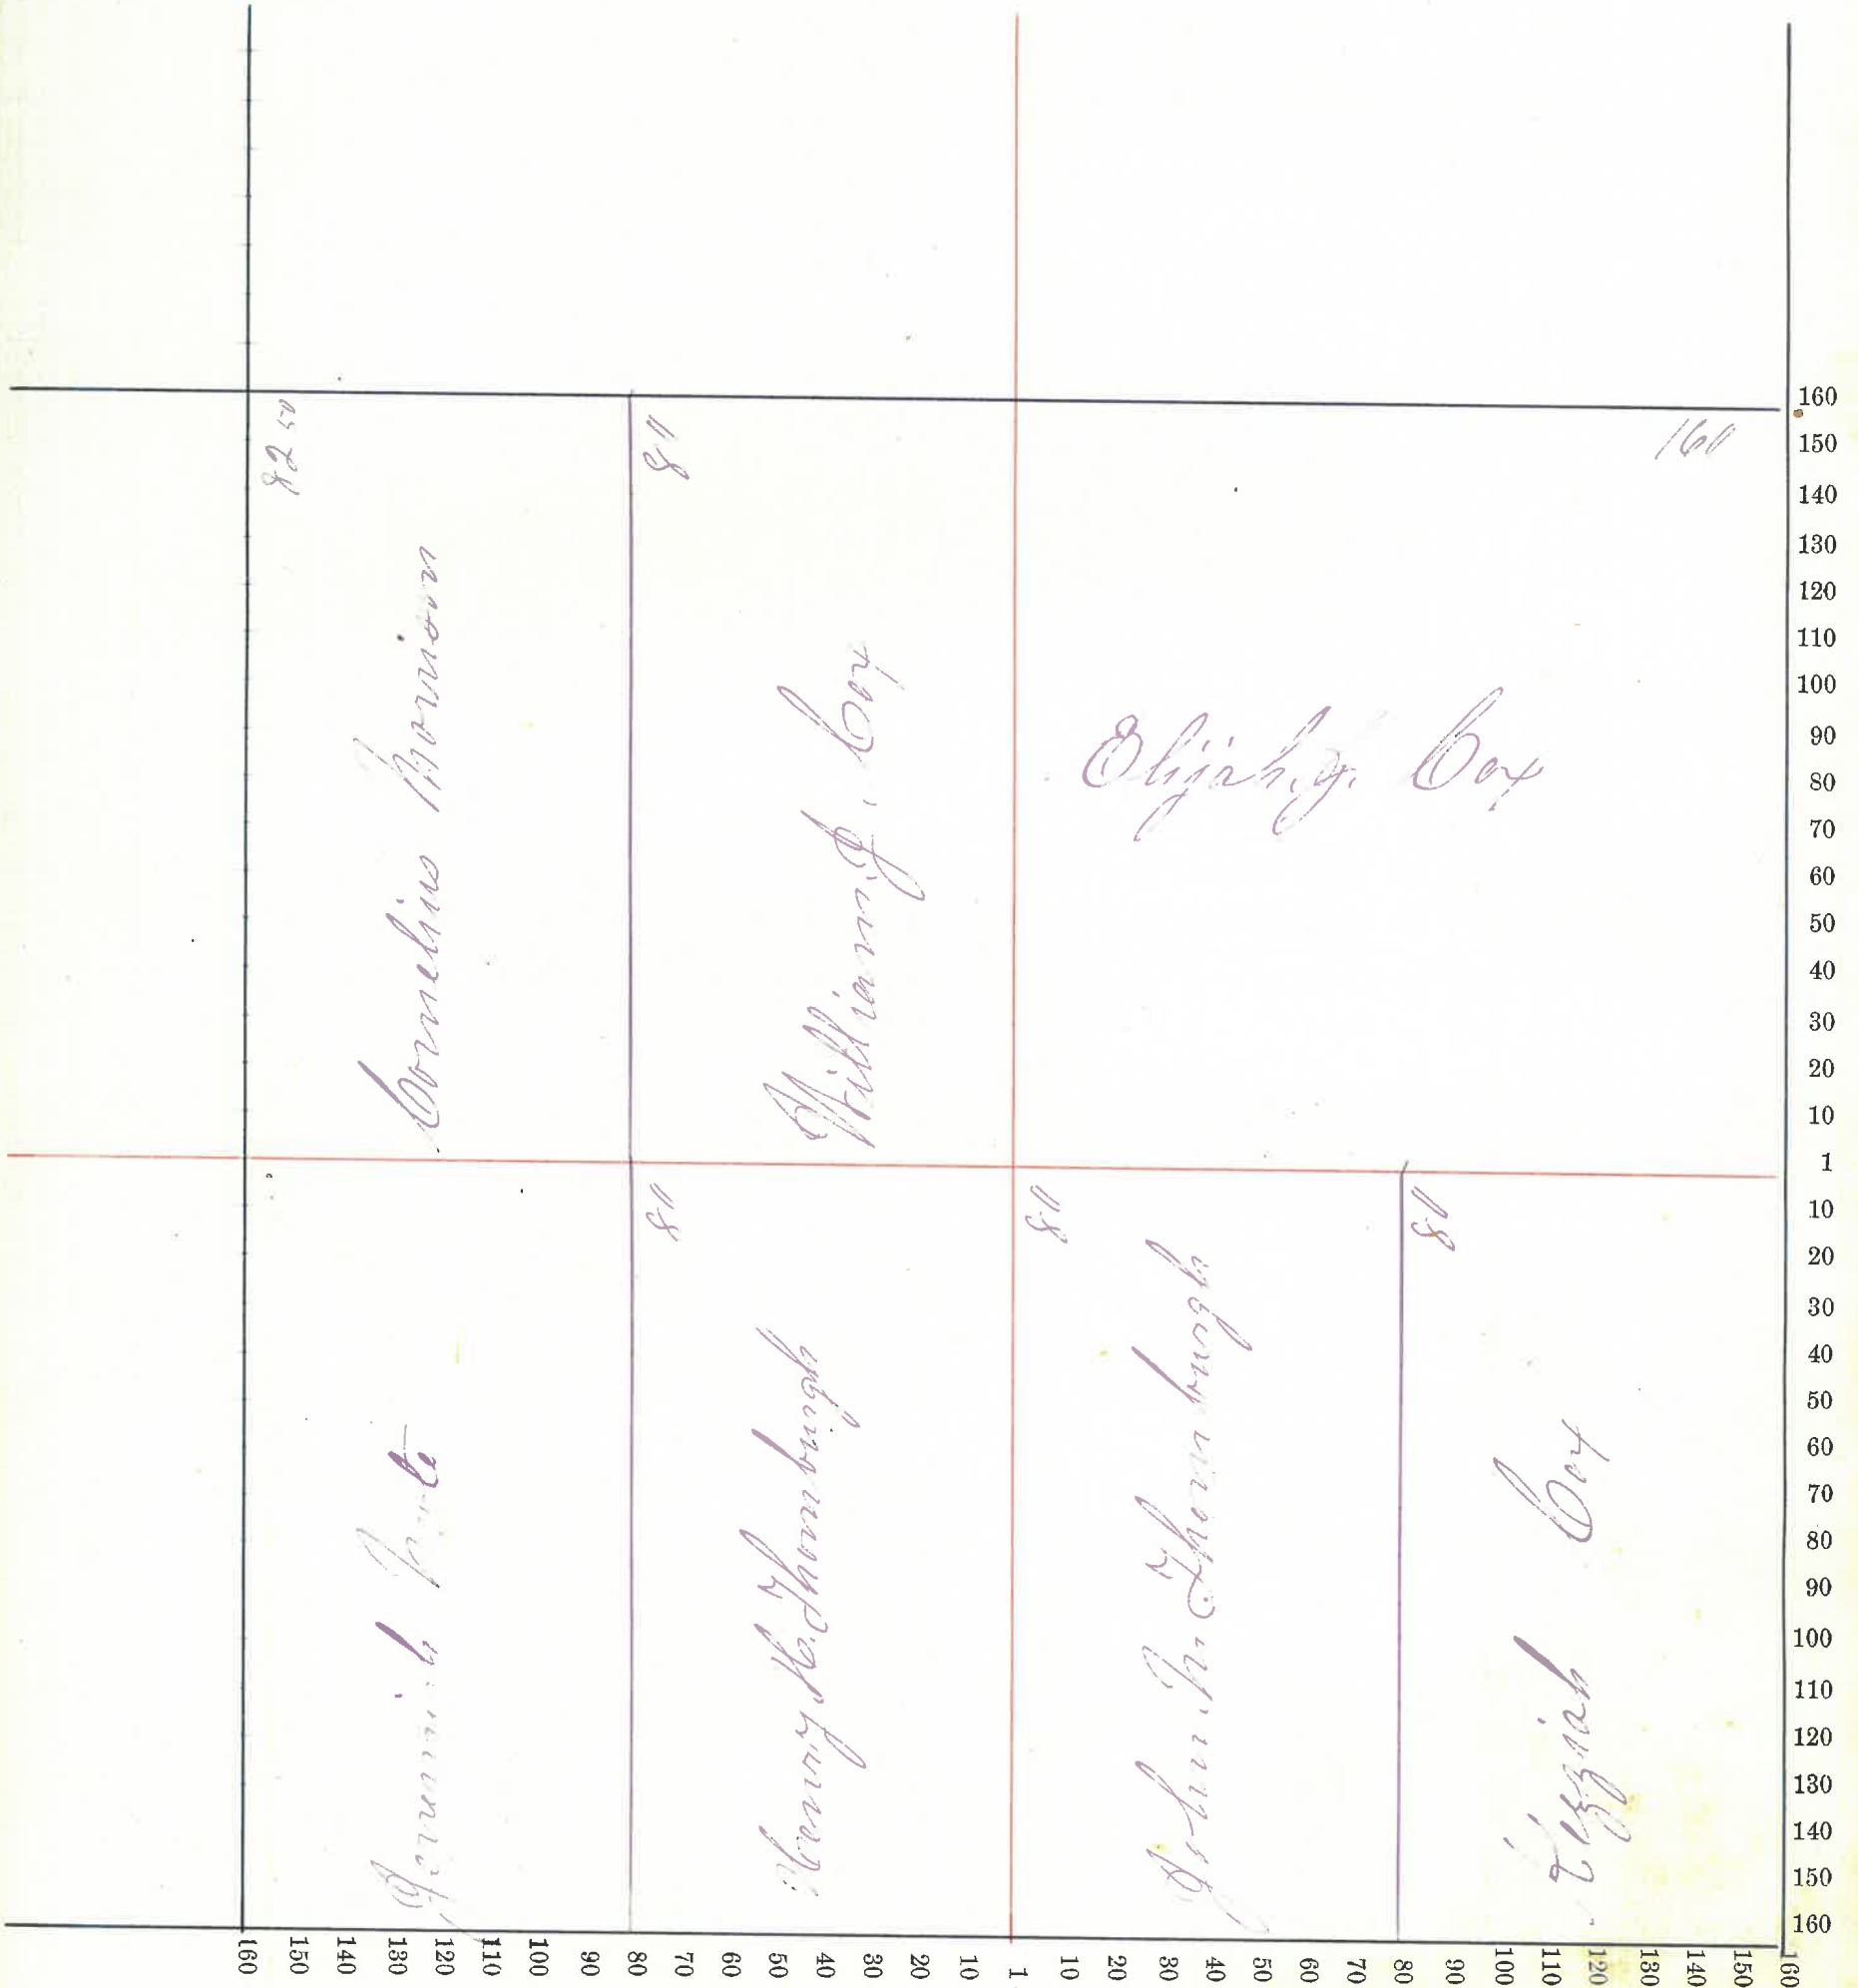 82 50
Cornelius Morrison
80
William J. Cox
160
Elijah. J. Cox
Jeremiah
80
Henry H. Thornburgh
80
John. M. Thornburgh
80
Kizziah Cox
160
150
140
130
120
110
100
90
80
70
60
50
40
30
20
10
1
10
20
30
40
50
60
70
80
90
100
110
120
130
140
150
160
160 150 140 130 120 110 100 90 80 70 60 50 40 30 20 10 1 10 20 30 40 50 60 70 80 90 100 110 120 130 140 150 160